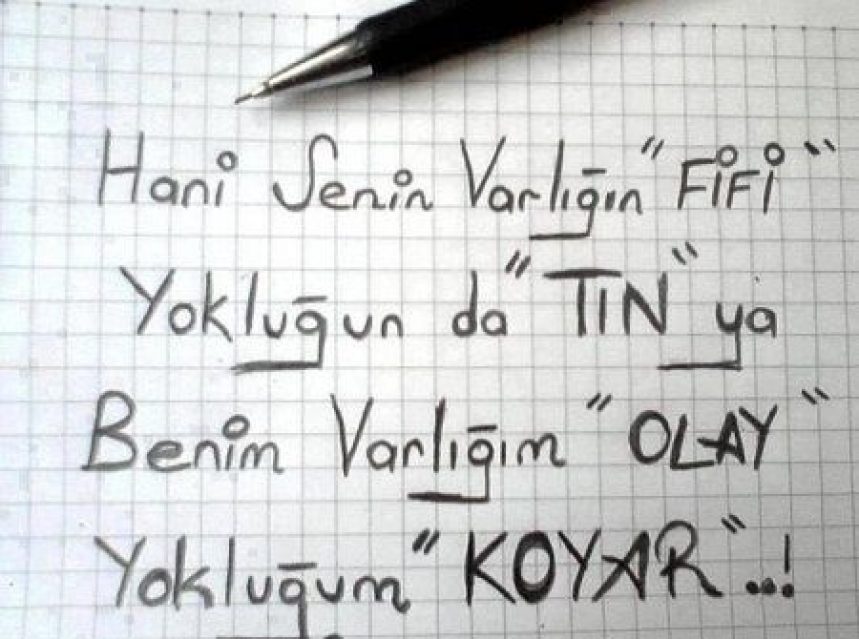 Hani Senin Varlığın "FİFİ"
Yokluğun da "TIN" ya
Benim Varlığım "OLAY"
Yokluğum "KOYAR"...!